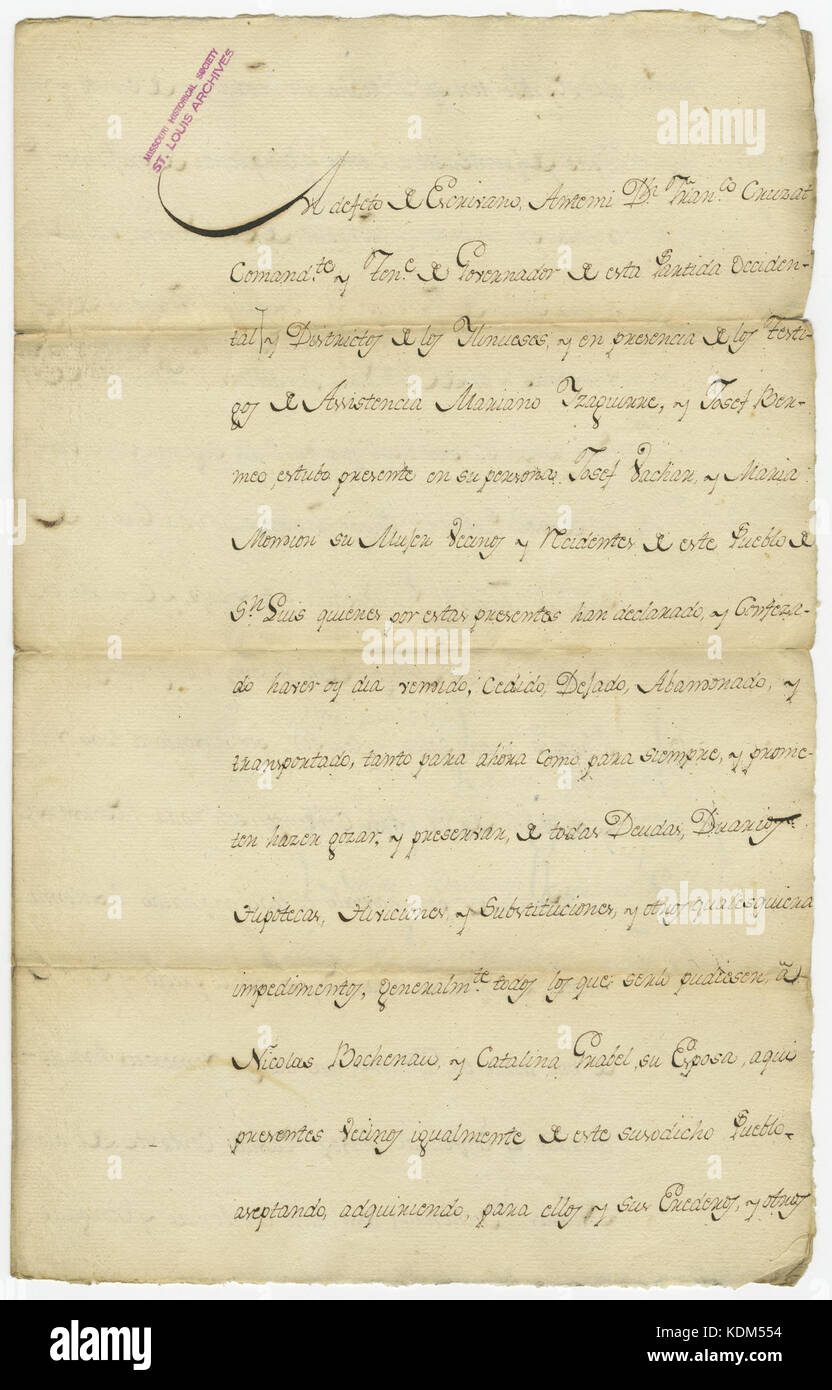 MISSOURI HISTORICAL SOCIETY
ST. LOUIS ARCHIVES
An defeto de Escrivano, Antemi Dn. Franco. Cruzat
Comandte. y Tene. de Governador de esta Partida Occiden-
tal y Districtos de los Ilinueses, y en presencia de los Testi-
gos de Assistencia Mariano Yzaguirre, y Josef Ber-
meo, estubo presente en su persona Josef Vachar, y Maria
Momion su Mujer Vecinos y Recidentes de este Pueblo de
Sn. Luis quienes por estas presentes han declarado, y Confeza-
do haver oy dia vendido, Cedido, Dejado, Abandonado, y
transportado, tanto para ahora como para siempre, y prome-
ten hazer gozar, y preservar, de todas Deudas, Diuarios
Hipotecas, y Substituciones, y otros qualesquiera
impedimentos, generalmte. todos los que serlo pudiesen, á
Nicolas Bochenau, y Catalina Grabel, su Esposa, aqui
presentes Vecinos igualmente de este susodicho Pueblo.
aseptando, adquiriendo, para ellos y sus Erederos, y otros
alamy
a
alamy stock photo
KDM554
www.alamy.com